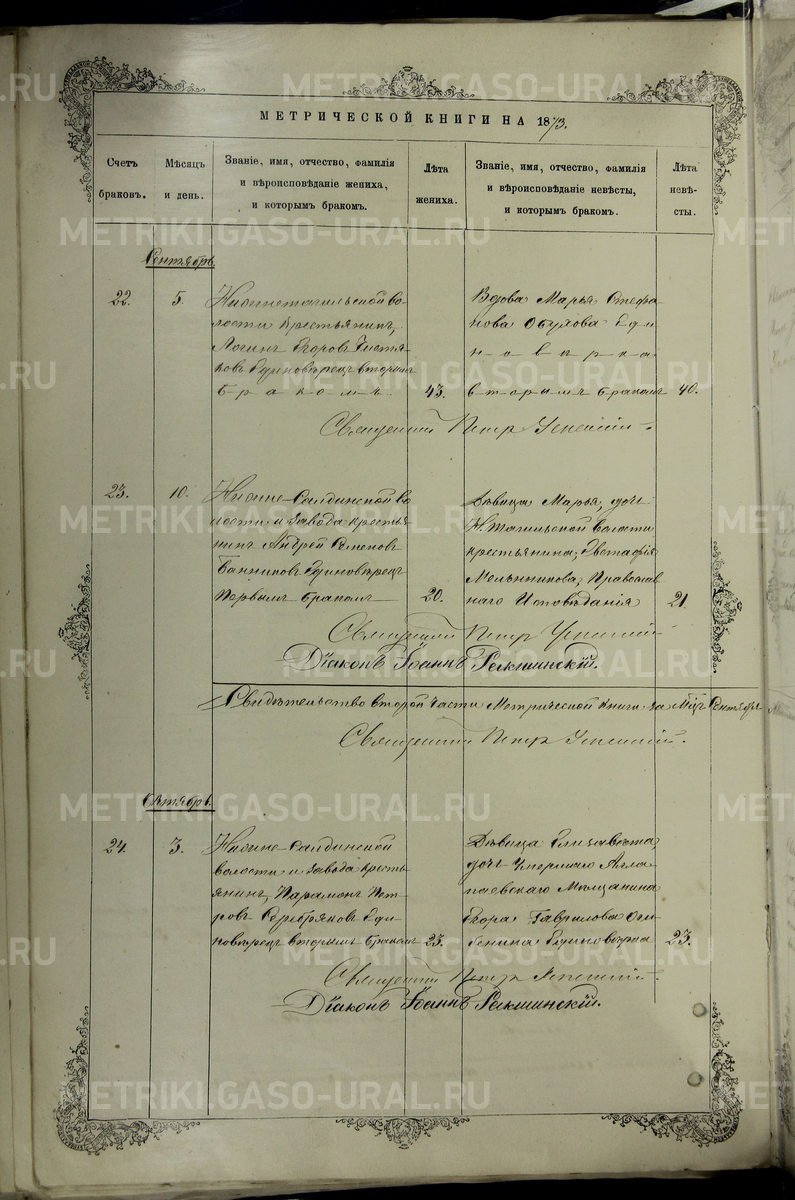 МЕТРИЧЕСКОЙ КНИГИ НА 1873.
Счетъ
браковъ.
Мѣсяцъ
и день.
Званіе, имя, отчество, фамилія
и вѣроисповѣданіе жениха,
и которымъ бракомъ.
Лѣта
жениха.
Званіе, имя, отчество, фамилія
и вѣроисповѣданіе невѣсты,
и которымъ бракомъ.
Лѣта
невѣ-
сты.
Сентябрь
22.
5.
Нижнетагильской во
лости крестьянинъ,
Логинъ Егоровъ Чистя
ковъ Единовѣрецъ вторымъ
бракомъ
43.
Вдова Марья Стефа
нова Обухова Еди
новѣрка
вторымъ бракомъ
40.
Священникъ Петръ Успенскій
23.
10.
Нижне-Салдинской во
лости и завода крестья
нинъ Андрей Семеновъ
Банниковъ Единовѣрецъ
первымъ бракомъ
20.
Дѣвица Марья, дочь
Н. Тагильской волости
крестьянина, Евстафія
Мельникова, Православ
наго Исповѣданія
21.
Священникъ Петръ Успенскій
Діаконъ Іоаннъ Рекшинскій.
Свидѣтельство второй части Метрической Книги за Мѣц. Сентябрь
Священникъ Петръ Успенскій.
Октябрь
24.
3.
Нижне-Салдинской
волости и завода кресть
янинъ, Парамонъ Пет
ровъ Серебряковъ Еди
новѣрецъ вторымъ бракомъ
23.
Дѣвица Елисавета,
дочь умершаго Алла
паевскаго Мѣщанина
Егора Гаврилова
Единовѣрка
23.
Священникъ Петръ Успенскій
Діаконъ Іоаннъ Рекшинскій.
METRIKI.GASO-URAL.RU